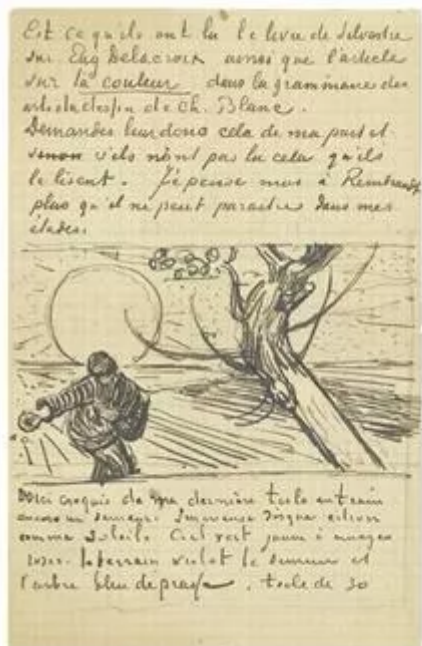 Est ce qu'ils ont lu le livre de Silvestre
sur Eug Delacroix ainsi que l'article
sur la couleur dans la grammaire des
arts du dessin de Ch. Blanc.
Demandes leur donc cela de ma part et
sinon s'ils n'ont pas lu cela qu'ils
le lisent. J'épense moi à Rembrandt
plus qu'il ne peut paraître dans mes
études.
Voici croquis de ma dernière toile en train
encore un semeur. Immense disque citron
comme soleil. Ciel vert jaune à nuages
roses. le terrain violet le semeur et
l'arbre bleu de prusse. toile de 30